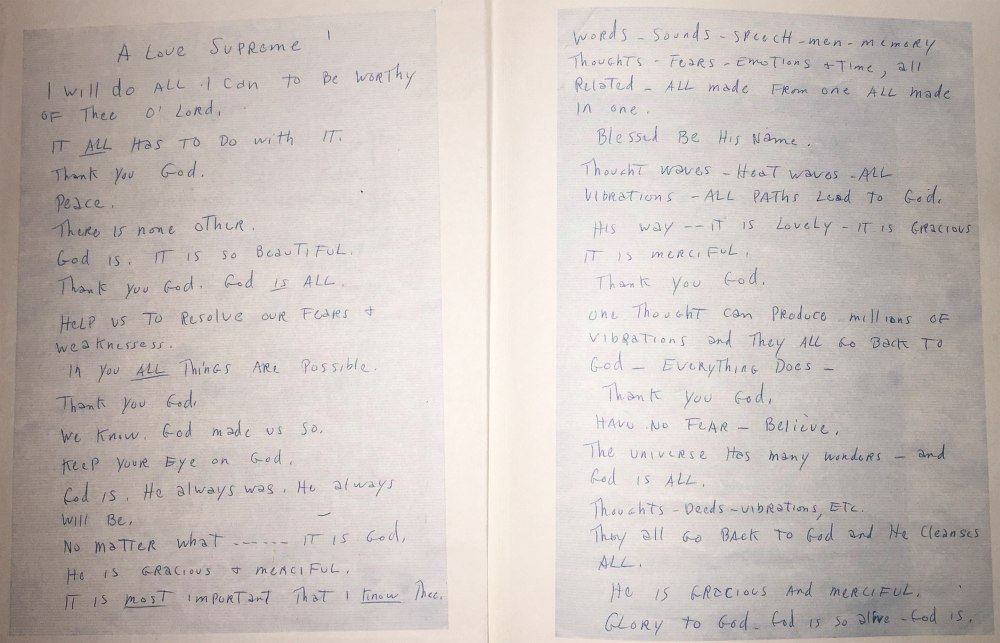 A Love Supreme !
I will do ALL I can to be worthy
OF Thee O' Lord.
IT ALL Has To Do with IT.
Thank you God.
Peace.
There is none other.
God is. IT is so Beautiful.
Thank you God. God is ALL.
Help us To Resolve our Fears &
weaknessess.
In you ALL Things Are Possible.
Thank you God.
We know. God made us so.
Keep your Eye on God.
God is. He always was. He always
will be.
No matter what ------ IT is God.
He is Gracious & merciful.
IT is most important That I know Thee.
Words - Sounds - Speech - men - memory
Thoughts - Fears - Emotions & Time, all
Related - ALL made From one ALL made
in one.
Blessed Be His Name.
Thought waves - Heat waves - ALL
vibrations - ALL Paths Lead to God.
His way -- IT is Lovely - IT is Gracious
IT is merciful.
Thank you God.
one Thought can Produce millions OF
vibrations and They ALL Go Back To
God - Everything Does -
Thank you God.
Have No Fear - Believe.
The universe Has many wonders - and
God is ALL.
Thoughts - Deeds - vibrations, ETC.
They all Go Back To God and He Cleanses
ALL.
He is Gracious and merciful.
Glory to God - God is so alive - God is.